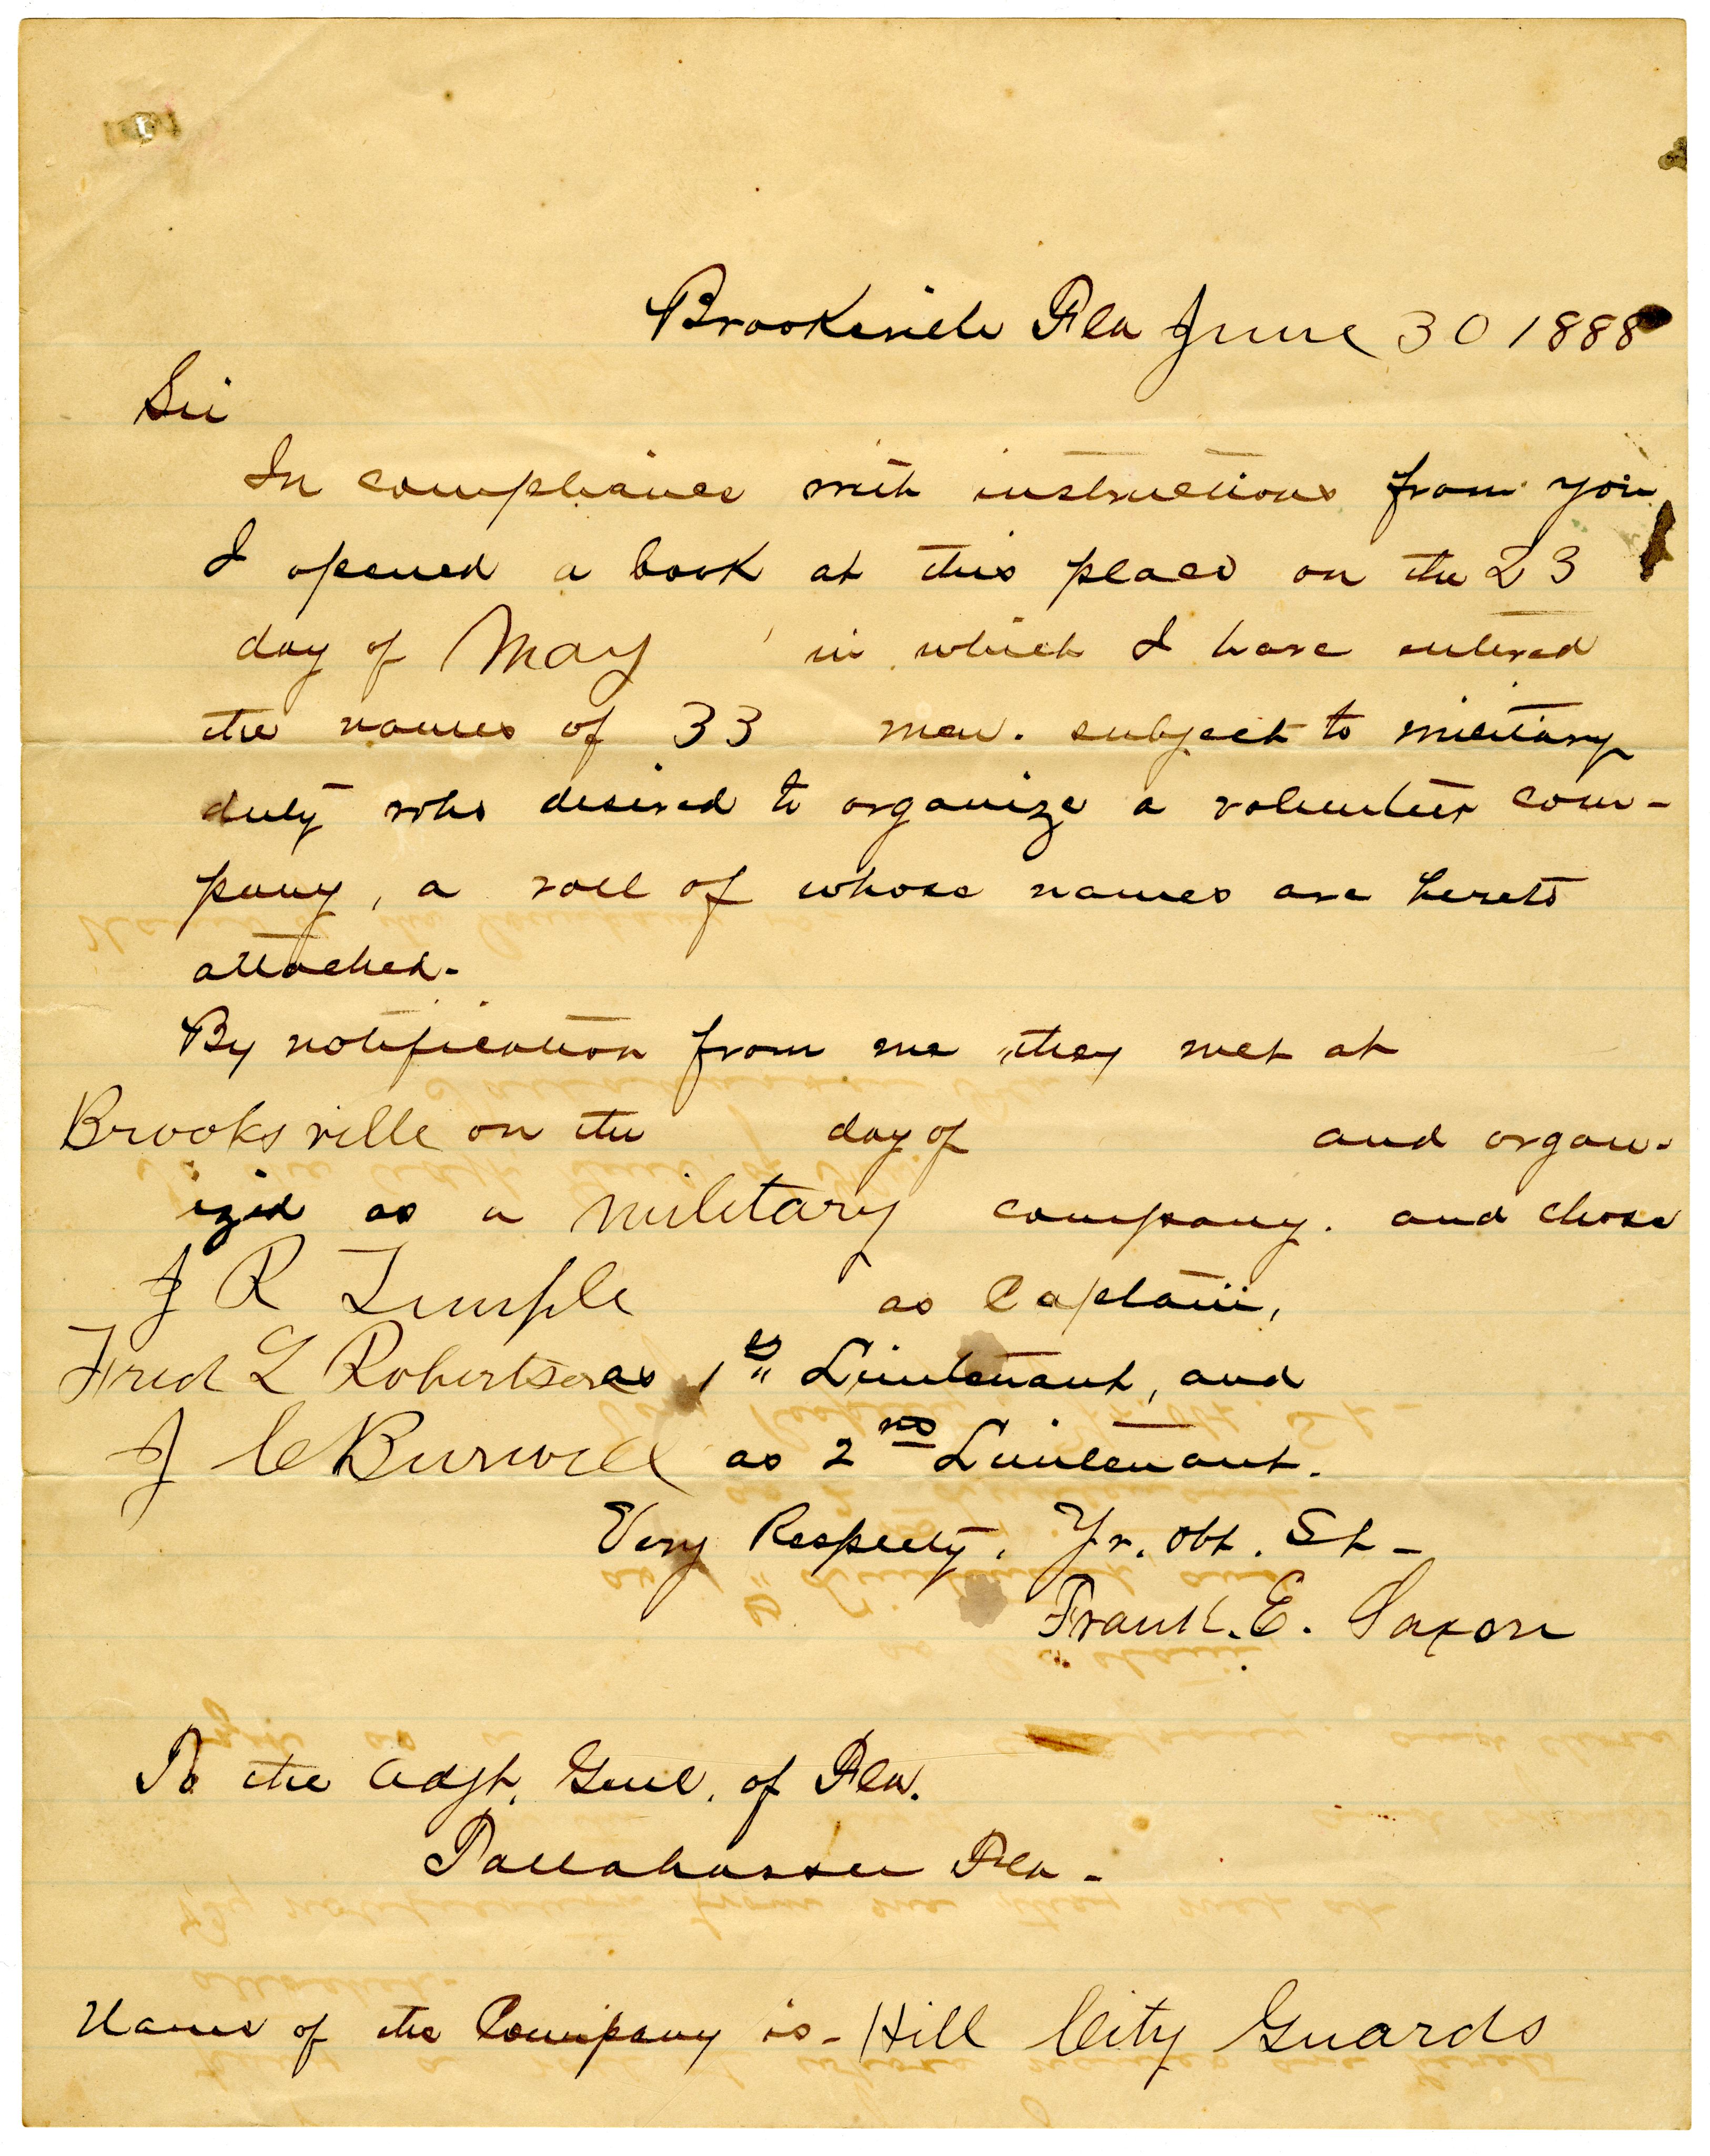 Brooksville Fla June 30 1888
Sir
In compliance with instructions from you
I opened a book at this place on the 23
day of May in which I have entered
the names of 33 men. subject to military
duty who desired to organize a volunteer com-
pany, a roll of whose names are hereto
attached.
By notification from me they met at
Brooksville on the day of and organ-
ized as a military company. and chose
J R Temple as Captain,
Fred L Robertson as 1st Lieutenant, and
J C Burwell as 2nd Lieutenant.
Very Respectly. Yr. Obt. St-
Frank. E. Saxon
To the Adjt. Genl. of Fla.
Tallahassee Fla-
Name of the Company is- Hill City Guards